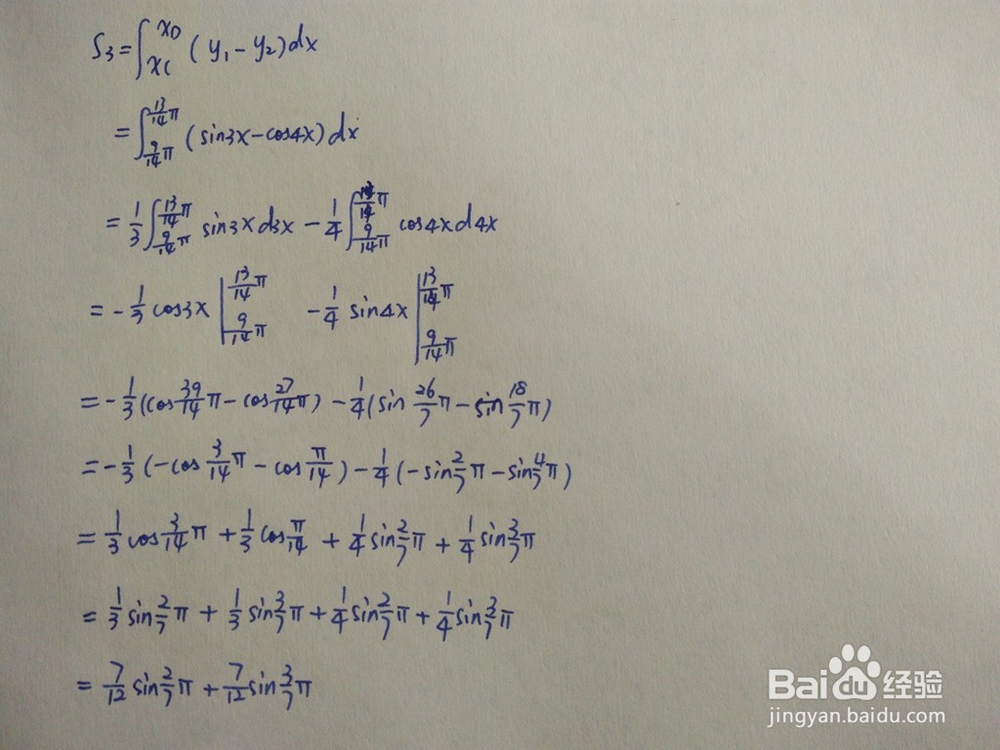 S₃=∫_{x_C}^{x_D} (y₁-y₂)dx
=∫_{9/14 π}^{13/14 π} (sin3x-cos4x)dx
=1/3 ∫_{9/14 π}^{13/14 π} sin3x d3x - 1/4 ∫_{9/14 π}^{13/14 π} cos4x d4x
=-1/3 cos3x |_{9/14 π}^{13/14 π} -1/4 sin4x |_{9/14 π}^{13/14 π}
=-1/3 (cos 39/14 π - cos 27/14 π) - 1/4 (sin 26/7 π - sin 18/7 π)
=-1/3 (-cos 3/14 π - cos π/14) - 1/4 (-sin 2/7 π - sin 4/7 π)
=1/3 cos 3/14 π + 1/3 cos π/14 + 1/4 sin 2/7 π + 1/4 sin 3/7 π
=1/3 sin 2/7 π + 1/3 sin 3/7 π + 1/4 sin 2/7 π + 1/4 sin 3/7 π
=7/12 sin 2/7 π + 7/12 sin 3/7 π
Baidu经验
jingyan.baidu.com